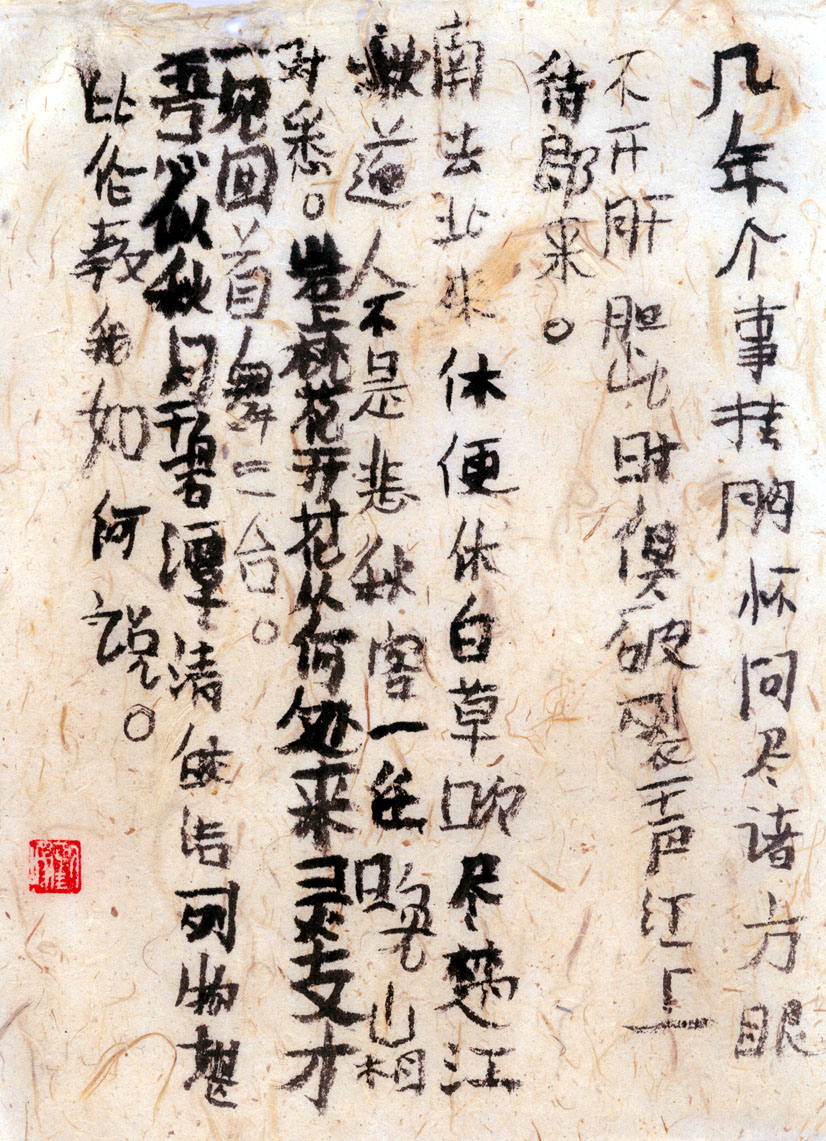 几年个事挂胸怀问尽诸方眼
不开肝胆此时俱破裂一声江上
待郎来。
南去北来休便休白草吹尽楚江
秋道人不是悲秋客一任晚山相
对愁。岩上桃花开花从何处来灵支才
一见回首舞三台。
吾心似秋月碧潭清皎洁物堪
比伦教我如何说。